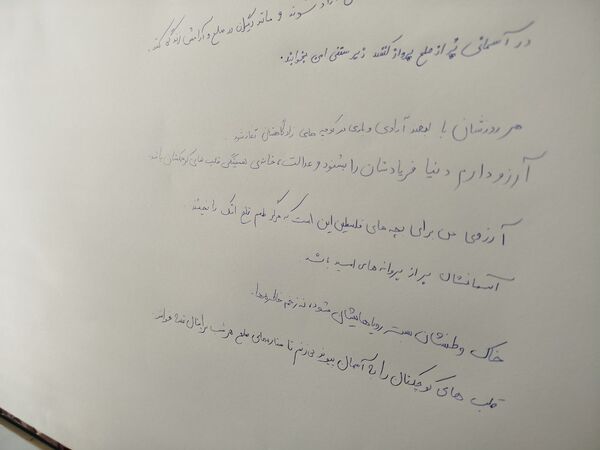 آزاد شوند و مانند دیگران در صلح و آرامش زندگی کنند.
در آسمانی پر از صلح پرواز کنند زیر سقفی امن بخوابند.
هر روزشان با امید آزادی و بازی در کوچه های زادگاهشان آغاز شود
آرزو دارم دنیا فریادشان را بشنود و عدالت، همیشگی قلب های کوچکشان باشد
آرزوی من برای بچه های فلسطین این است که هرگز طعم تلخ اشک را نچشند
آسمانشان پر از پروانه های امید باشد
خاک وطنشان بستر رویاهایشان شود، نه زخم خاطره‌ها.
قلب های کوچکتان را به آسمان پیوند می‌زنم تا ستاره‌های صلح هر شب برایتان قصه بخوانند